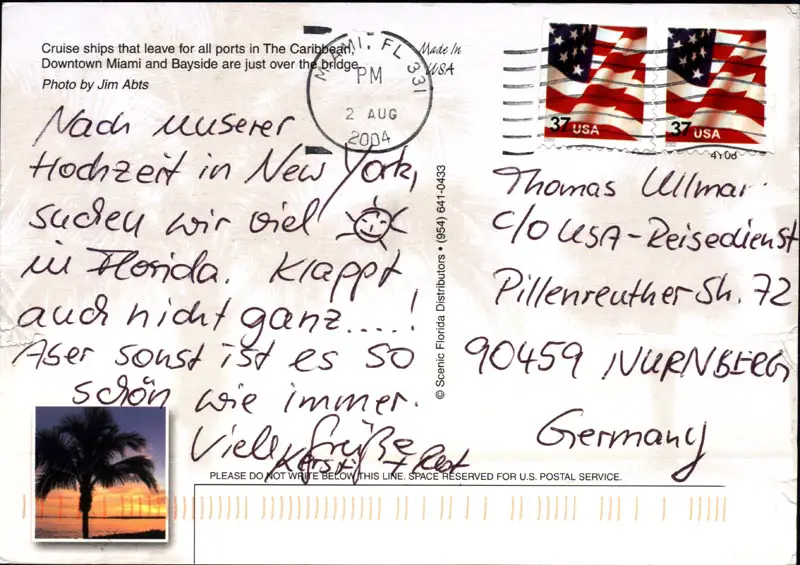 Cruise ships that leave for all ports in The Caribbean,
Downtown Miami and Bayside are just over the bridge.
Photo by Jim Abts
Made In
USA
MIAMI, FL 331
PM
2 AUG
2004
37 USA
37 USA
Nach unserer
Hochzeit in New York,
suchen wir viel
in Florida. Klappt
auch nicht ganz....!
Aber sonst ist es so
schön wie immer.
Viele Grüße
© Scenic Florida Distributors • (954) 641-0433
Thomas
c/o USA-Reisedienst
Pillenreuther Str. 72
90459 NÜRNBERG
Germany
PLEASE DO NOT WRITE BELOW THIS LINE. SPACE RESERVED FOR U.S. POSTAL SERVICE.